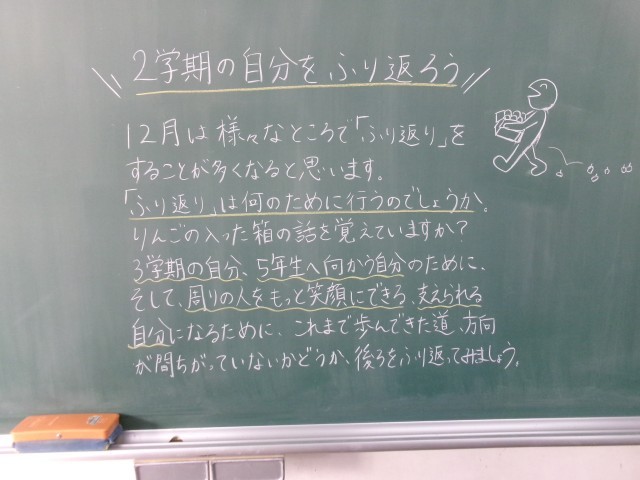 2学期の自分をふり返ろう
12月は様々なところで「ふり返り」を
することが多くなると思います。
「ふり返り」は何のために行うのでしょうか。
りんごの入った箱の話を覚えていますか?
3学期の自分、5年生へ向かう自分のために、
そして、周りの人をもっと笑顔にできる、支えられる
自分になるために、これまで歩んできた道、方向
が間ちがっていないかどうか、後ろをふり返ってみましょう。